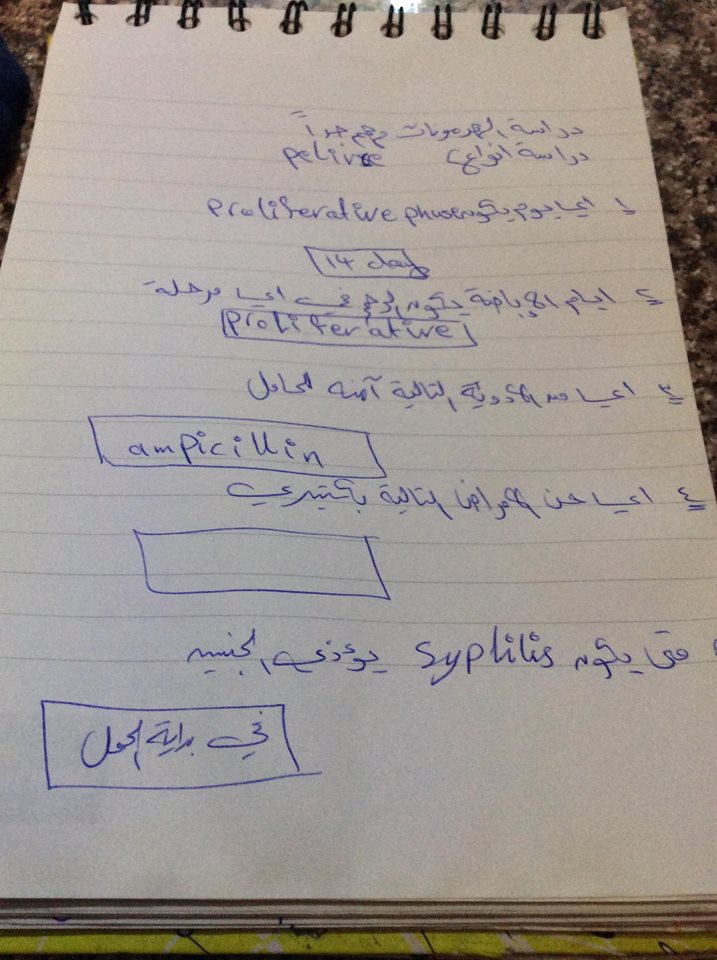 دراسة الهرمونات مهم جداً
دراسة انواع pelivce
١ اي يوم يكون proliferative phase
14 days
٢ ايام الإباضة يكون الرحم في اي مرحلة
proliferative
٣ اي من الأدوية التالية آمنه للحامل
ampicillin
٤ اي من الامراض التالية بكتيري
متى يكون Syphilis يؤذي الجنين
في بداية الحمل